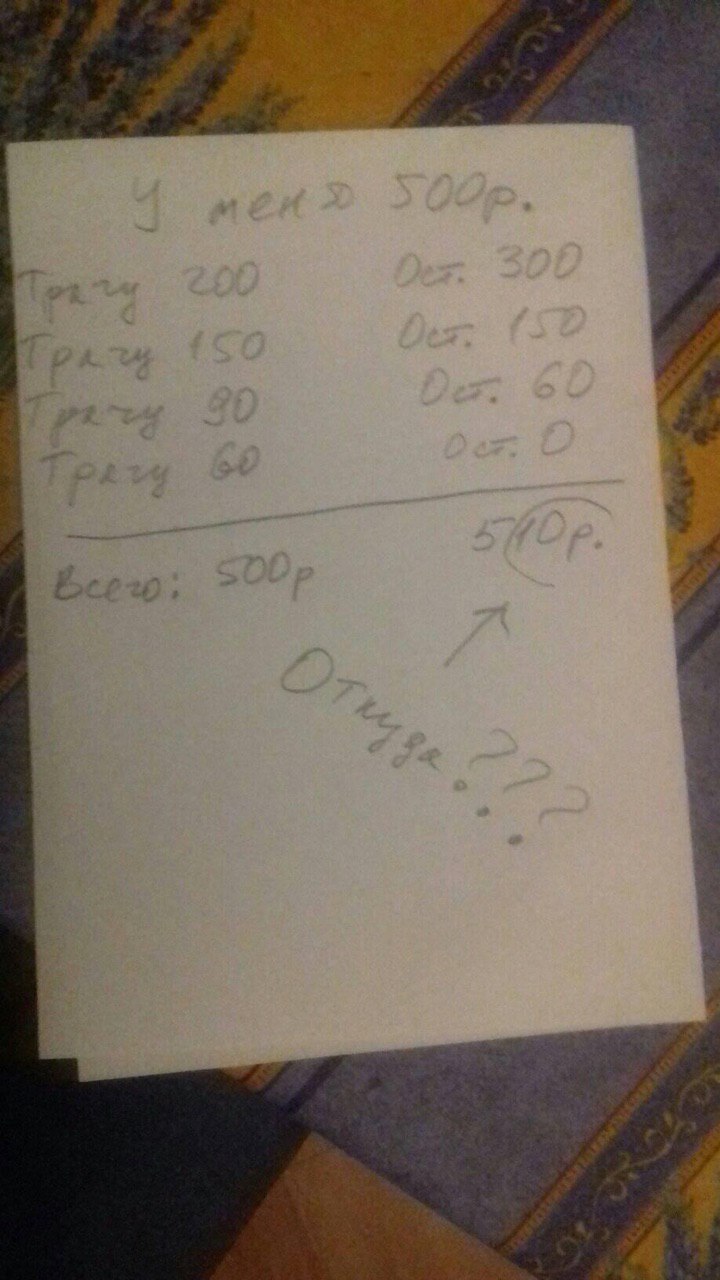 У меня 500р.
Трачу 200 Ост. 300
Трачу 150 Ост. 150
Трачу 90 Ост. 60
Трачу 60 Ост. 0
Всего: 500р 510р.
Откуда???